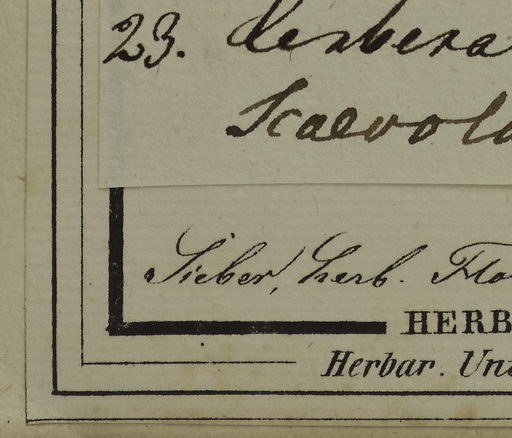 23. Xerbera
Scaevol
Sieber, herb. Flo
HERB
Herbar. Un